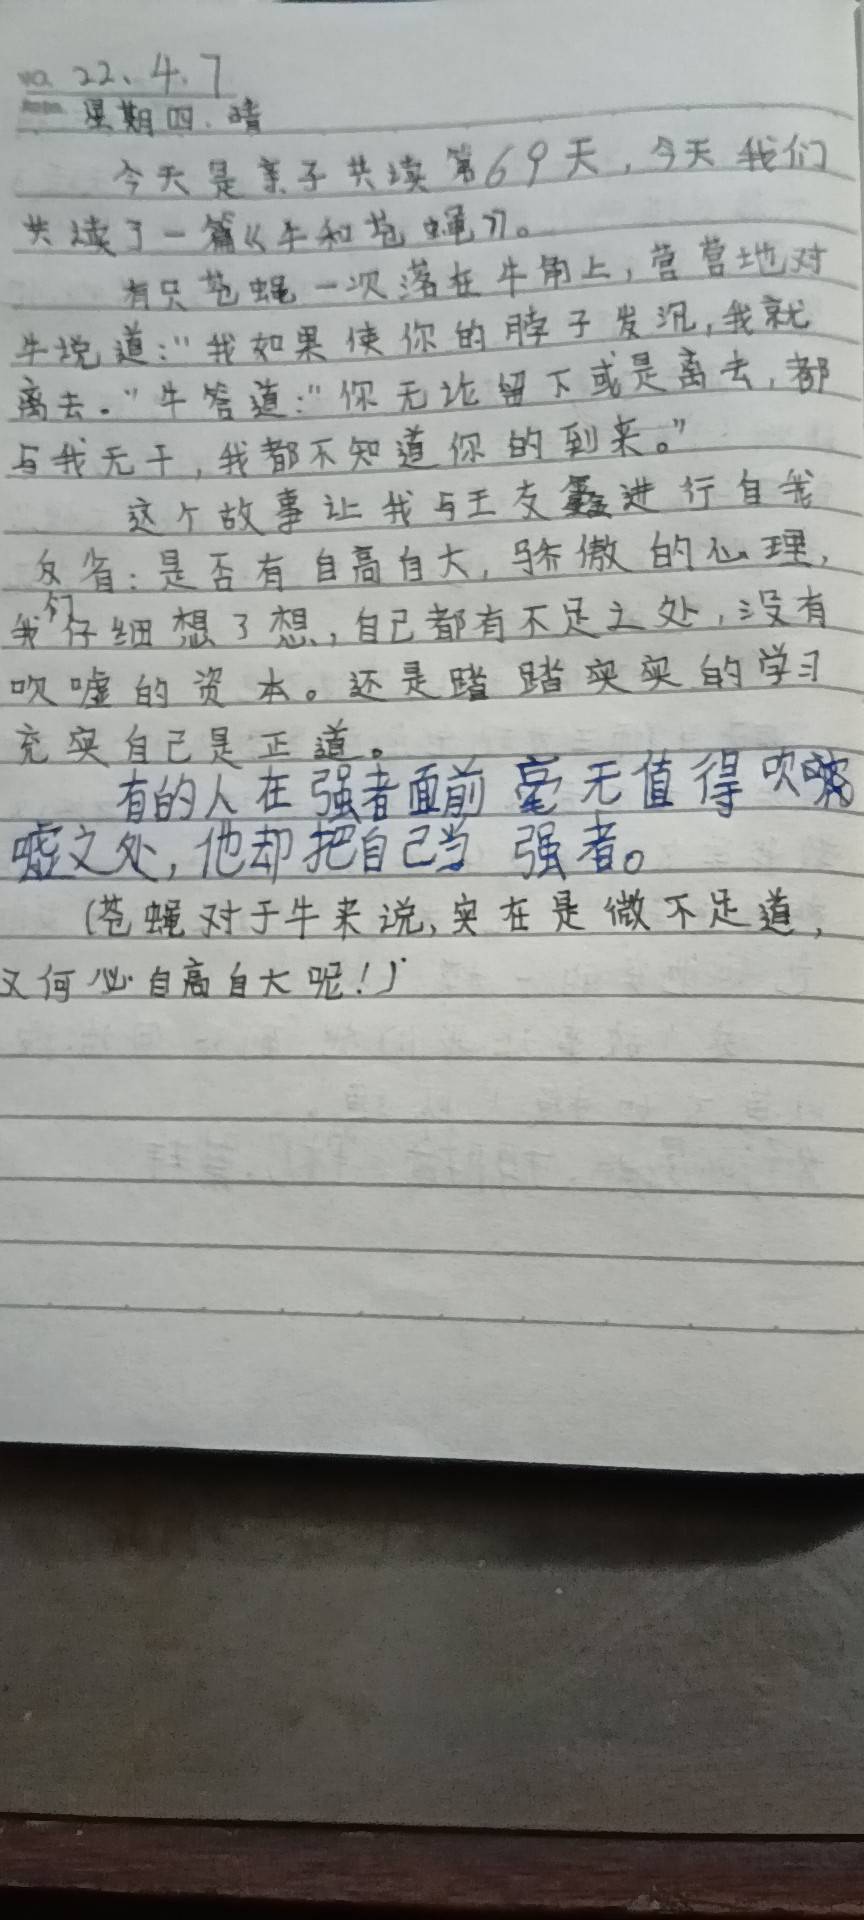 22.4.7
星期四.晴
今天是亲子共读第69天,今天我们
共读了一篇《牛和苍蝇》。
有只苍蝇一次落在牛角上,营营地对
牛说道:"我如果使你的脖子发沉,我就
离去。"牛答道:"你无论留下或是离去,都
与我无干,我都不知道你的到来。"
这个故事让我与王友鑫进行自我
反省:是否有自高自大,骄傲的心理,
我们仔细想了想,自己都有不足之处,没有
吹嘘的资本。还是踏踏实实的学习
充实自己是正道。
有的人在强者面前毫无值得吹
嘘之处,他却把自己当强者。
(苍蝇对于牛来说,实在是微不足道,
又何必自高自大呢!)